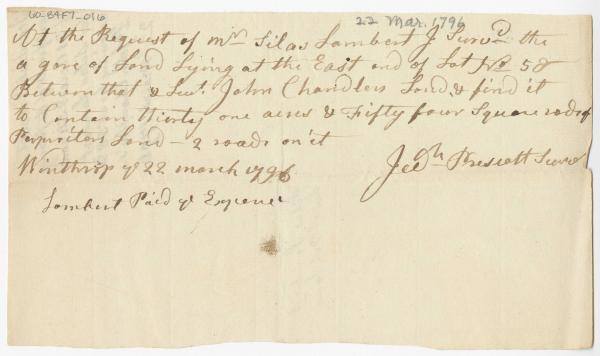 60-B4F7-016
22 Mar. 1796
At the Request of mr Silas Lambert I Survd the
a gore of Land Lying at the East end of Lot No 58
Between that & John Chandlers Land & find it
to Contain thirty one acres & Fifty four Square rods of
Land - 2 roads on it
Winthrop ye 22 march 1796
Jedh Prescott Survr
Lambert Paid ye Expence